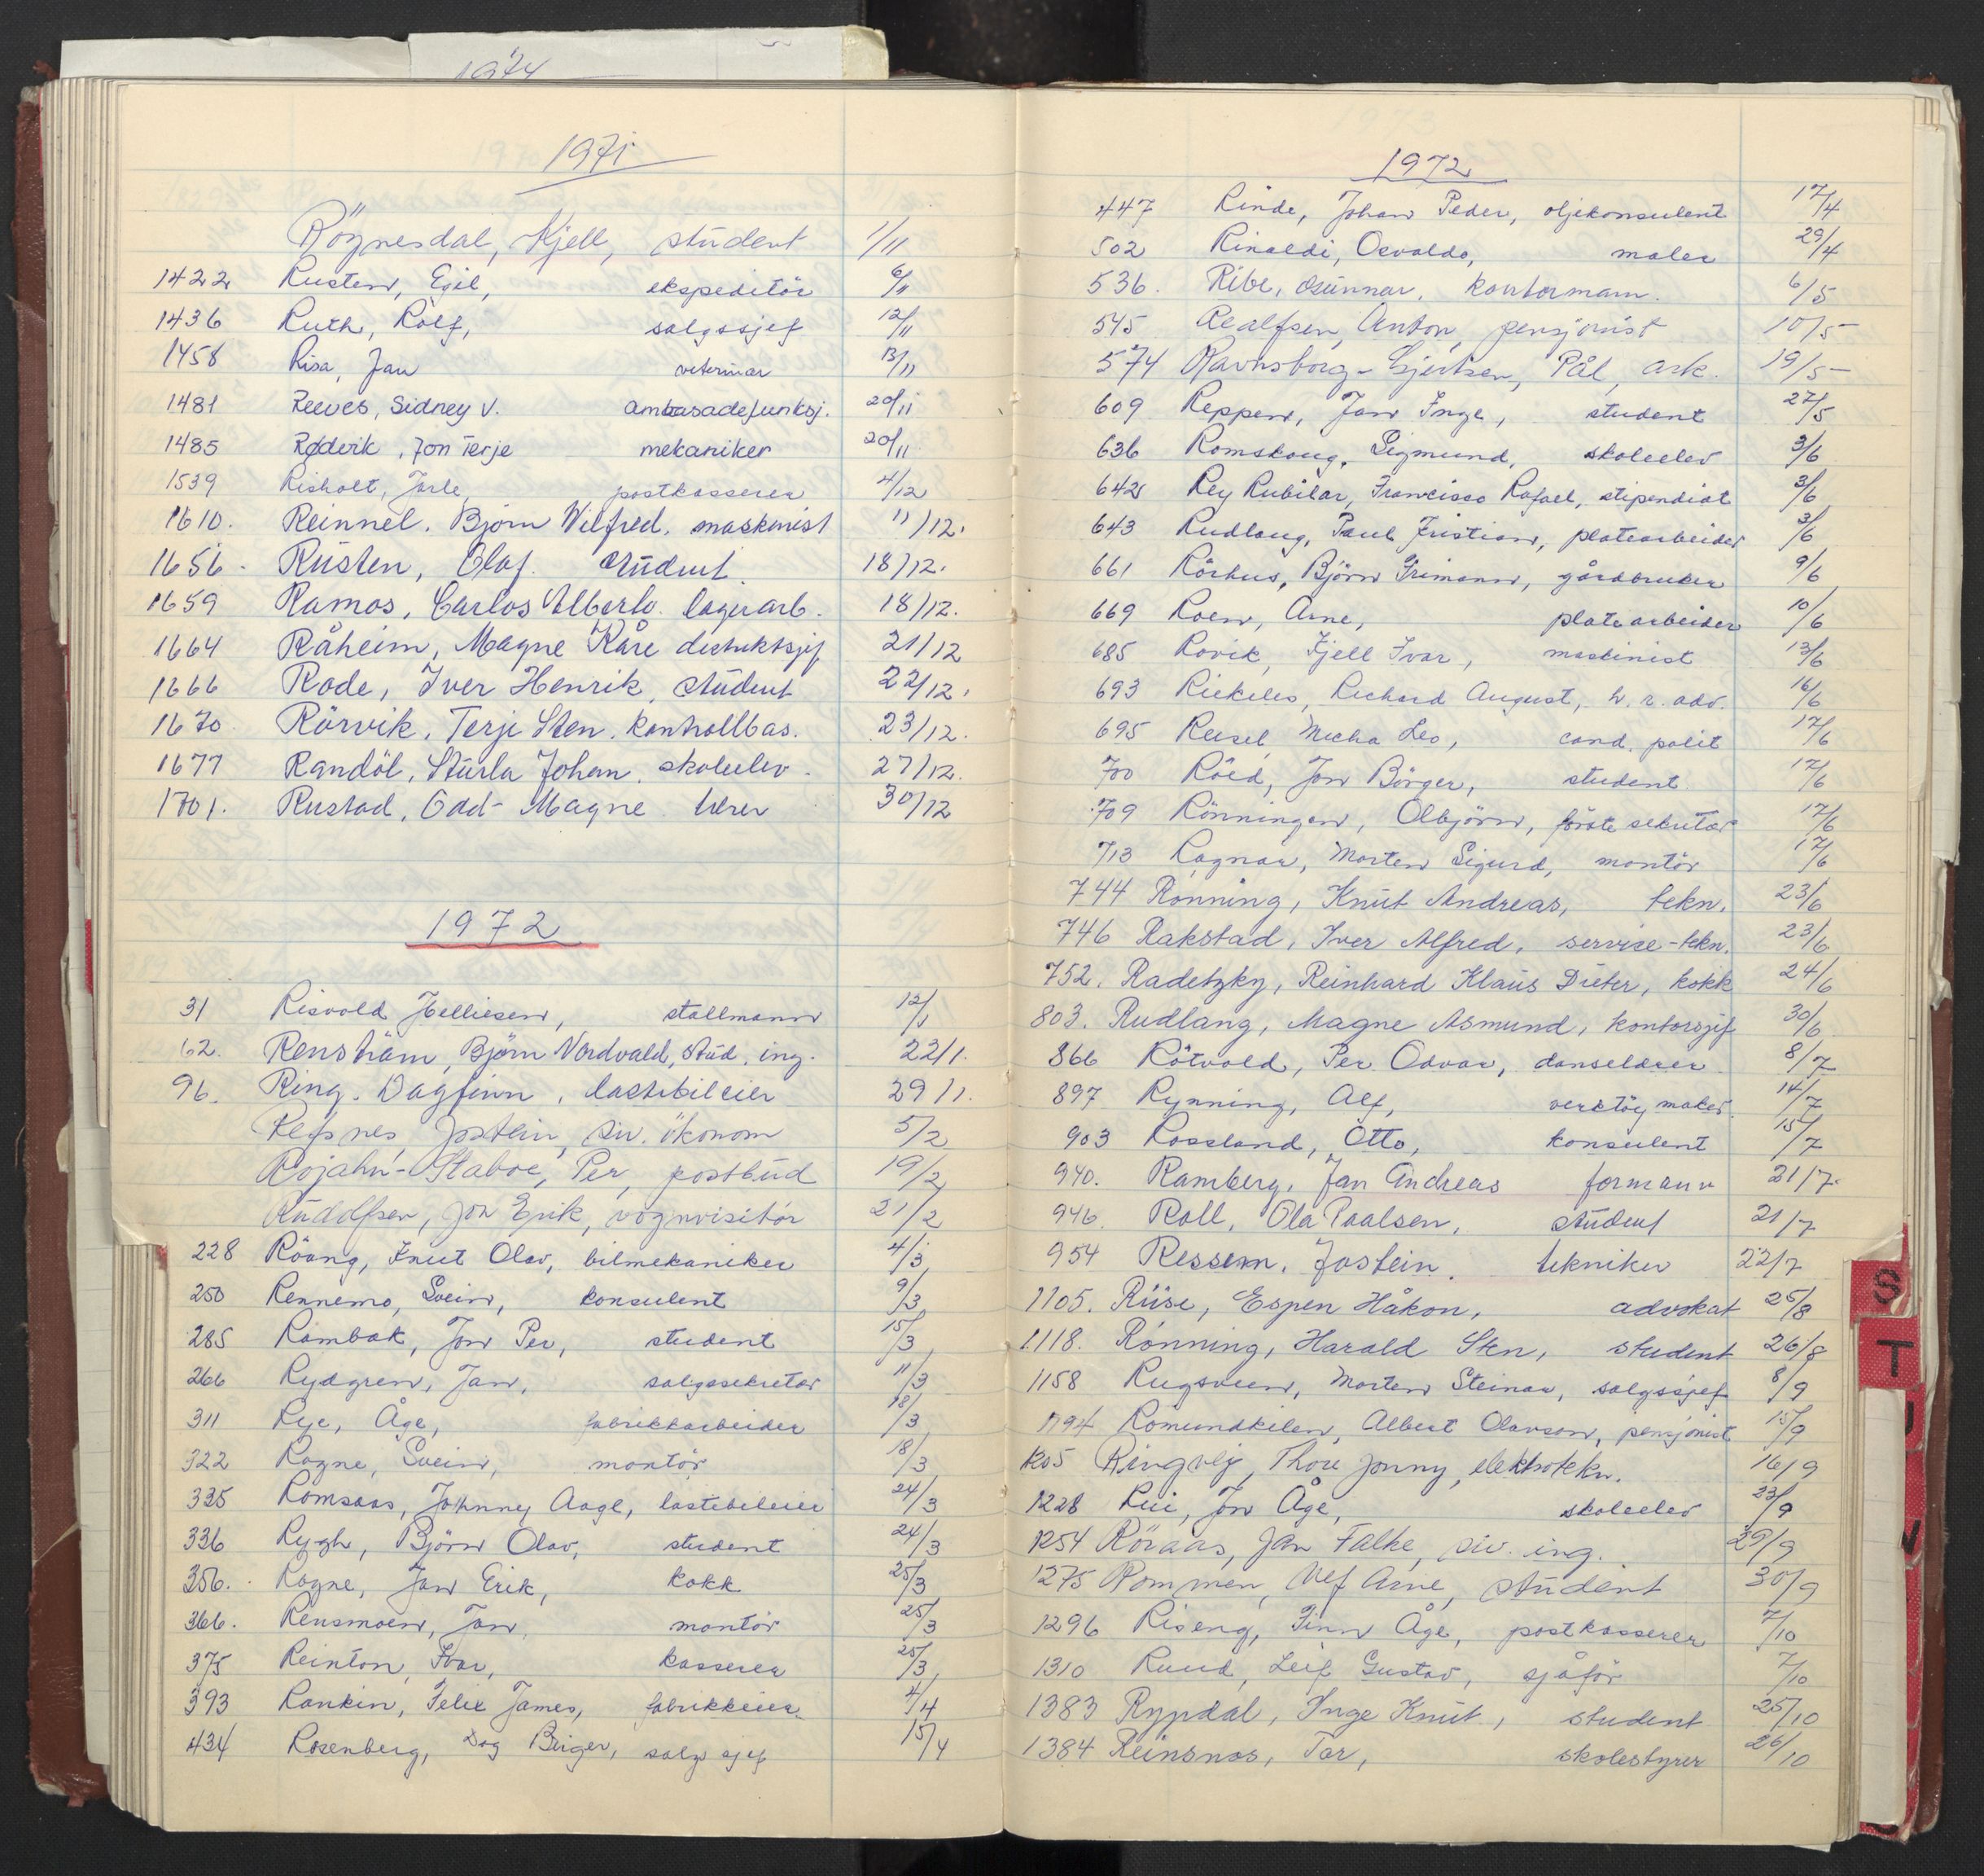 1974
1971
Rögnesdal, Kjell, student 1/11
1422 Rusten, Egil, ekspeditör 6/11
1436 Ruth, Rolf, salgssjef 12/11
1458 Risa, Jan veterinær 13/11
1481 Reeves, Sidney V. Ambasadefunksj. 20/11
1485 Rødvik, Jon Terje mekaniker 20/11
1539 Risholt, Jarle, postkasserer 4/12
1610. Reinnel. Björn Wilfred. maskinist 11/12.
1656. Rusten, Olaf. student. 18/12.
1659 Ramos, Carlos Alberto. lagerarb. 18/12.
1664 Råheim, Magne Kåre distriktsjef 21/12
1666 Rode, Iver Henrik, student 22/12.
1670 Rörvik, Terje Sten. kontrollbas. 23/12.
1677 Randöl, Sturla Johan. skoleelev. 27/12.
1701. Rustad, Odd-Magne lærer 30/12
1972
31 Risvold Helliesen, stallmann 12/1
62. Renshäm, Björn Nordvald, stud. ing. 22/1.
96. Ring. Dagfinn, lastebileier 29/1.
Refsnes, Jostein, siv. ökonom 5/2
Rojahn-Staboe, Per, postbud 19/2
Rudolfsen, Jon Erik, vognvisitör 21/2
228 Röang, Knut Olav, bilmekaniker 4/3
250 Rennemo, Svein, konsulent 9/3
285 Rambøk, Jon Per, student 15/3
266 Rydgren, Jan, salgssekretær 11/3
311 Rye, Åge, fabrikkarbeider 18/3
322 Rogne, Svein, montör 18/3
335 Romsaas, Johnny Aage, lastebileier 24/3
336 Rygh, Björn Olav, student 24/3
356. Rogne, Jan Erik, kokk 25/3
366. Rensmoen, Jan, montör 25/3
375 Reinton, Ivar, kasserer 25/3
393 Rankin, Felix James, fabrikkeier 4/4
434 Rosenberg, Dag Birger, salgssjef 15/4
1972
447 Rinde, Johan Peder, oljekonsulent 17/4
502 Rinaldi, Osvaldo, maler 29/4
536. Ribe, Gunnar. kontormann. 6/5
545 Realfsen, Anton, pensjonist 10/5
574 Ravnsborg-Gjertsen, Pål, ark. 19/5
609 Reppen, Jan Inge, student 27/5
636 Romskoug, Sigmund, skoleelev 3/6
642 Rey Rubilar, Francisco Rafael, stipendiat 3/6
643 Rudlang, Paul Kristian, platearbeider 3/6
661 Rörhus, Björn Grimann, gårdbruker 9/6
669 Roen, Arne, platearbeider 10/6
685 Rovik, Kjell Ivar, maskinist 13/6
693 Riekeles, Richard August, h.r.adv. 16/6
695 Reisel, Micha Leo, cand. polit 17/6
700 Röed, Jon Börger, student 17/6
709 Rönningen, Olbjörn, förstesekretær 17/6
713 Ragnar, Morten Sigurd, montör 17/6
744 Rönning, Knut Andreas, tekn. 23/6
746 Rakstad, Iver Alfred, service-tekn. 23/6
752. Radetzky, Reinhard Klaus Dieter, kokk 24/6
803. Rudlang, Magne Asmund, kontorsjef 30/6
866 Rötvold, Per Odvar, danselærer 8/7
897 Rynning, Alf, verktöymaker. 14/7
903 Rossland, Otto, konsulent 15/7
940. Ramberg, Jan Andreas formann 21/7.
946. Roll, Ola Paalsen, student 21/7
954 Ressem, Jostein. tekniker 22/7
1105. Riise, Espen Håkon, advokat 25/8
1118. Rönning, Harald Sten, student 26/8
1158 Rugsveen, Morten Steinar, salgssjef 8/9
1194 Romundkilen, Albert Olavson, pensjonist 15/9
1205 Ringvej, Thore Jonny, elektrotekn. 16/9
1228 Rui, Jon Åge, skoleelev 23/9
1254 Röraas, Jan Falke, siv. ing. 29/9
1275 Rommen, Alef Arne, student 30/9
1296 Riseng, Finn Åge, postkasserer 7/10
1310 Ruud, Leif Gustav, sjåför 7/10
1383 Rypdal, Inge Knut, student 25/10
1384 Reinsnos, Tor, skolestyrer 26/10
S
T